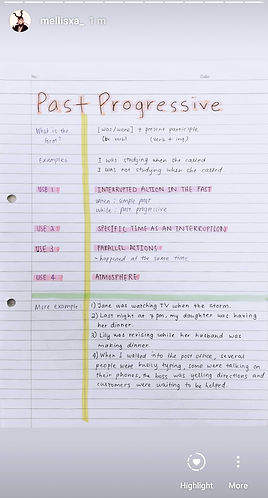 mellisxa_ 1 m
No.
Date
Past Progressive
What is the form?
[was/were] + present participle
(be verb) (verb + ing)
Examples
I was studying when she called.
I was not studying when she called.
USE 1 INTERRUPTED ACTION IN THE PAST
when : simple past
while : past progressive
USE 2 SPECIFIC TIME AS AN INTERRUPTION
USE 3 PARALLEL ACTIONS
- happened at the same time
USE 4 ATMOSPHERE
More example
1) Jane was watching TV when the storm.
2) Last night at 7 pm, my daughter was having
her dinner.
3) Lily was revising while her husband was
making dinner.
4) When I walked into the post office, several
people were busily typing, some were talking on
their phones, the boss was yelling directions and
customers were waiting to be helped.
Highlight
More